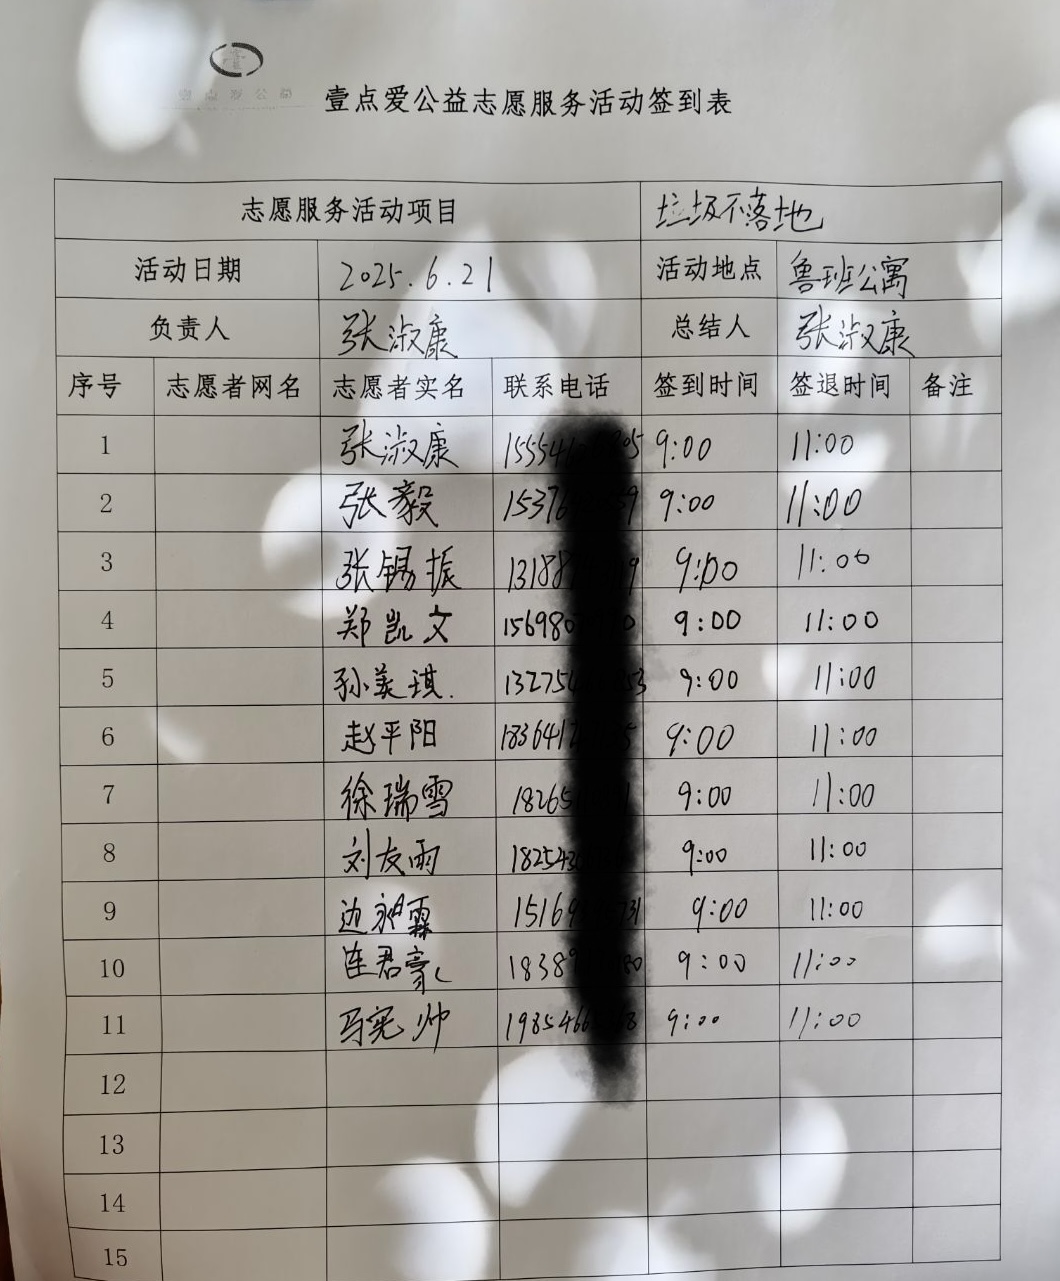 壹点爱公益
壹点爱公益志愿服务活动签到表
志愿服务活动项目 垃圾不落地
活动日期 2025.6.21 活动地点 鲁班公寓
负责人 张淑康 总结人 张淑康
序号 志愿者网名 志愿者实名 联系电话 签到时间 签退时间 备注
1 张淑康 9:00 11:00
2 张毅 9:00 11:00
3 张锡振 9:00 11:00
4 郑凯文 9:00 11:00
5 孙美琪. 9:00 11:00
6 赵平阳 9:00 11:00
7 徐瑞雪 9:00 11:00
8 刘友雨 9:00 11:00
9 边昶霖 9:00 11:00
10 连君豪 9:00 11:00
11 马宪帅 9:00 11:00
12
13
14
15